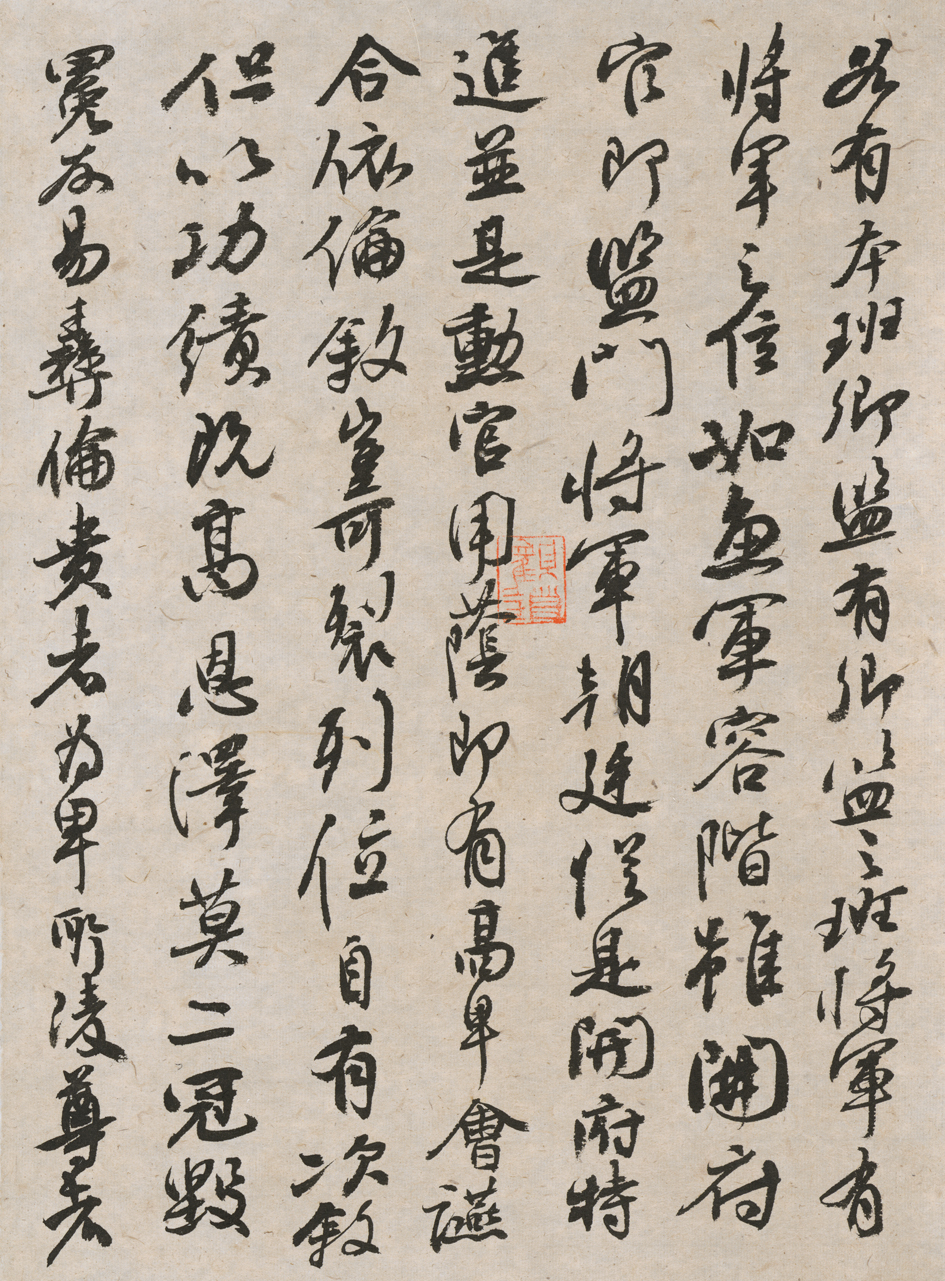 各有本班卿監有卿監之班將軍有
將軍之位如魚軍容階雖開府
官即監門將軍朝廷從是開府特
進並是勳官用蔭即有高卑會讌
合依倫敘豈可裂列位自有次敘
但以功績既高恩澤莫二冠毀
冕反易彝倫貴者為卑所凌尊者